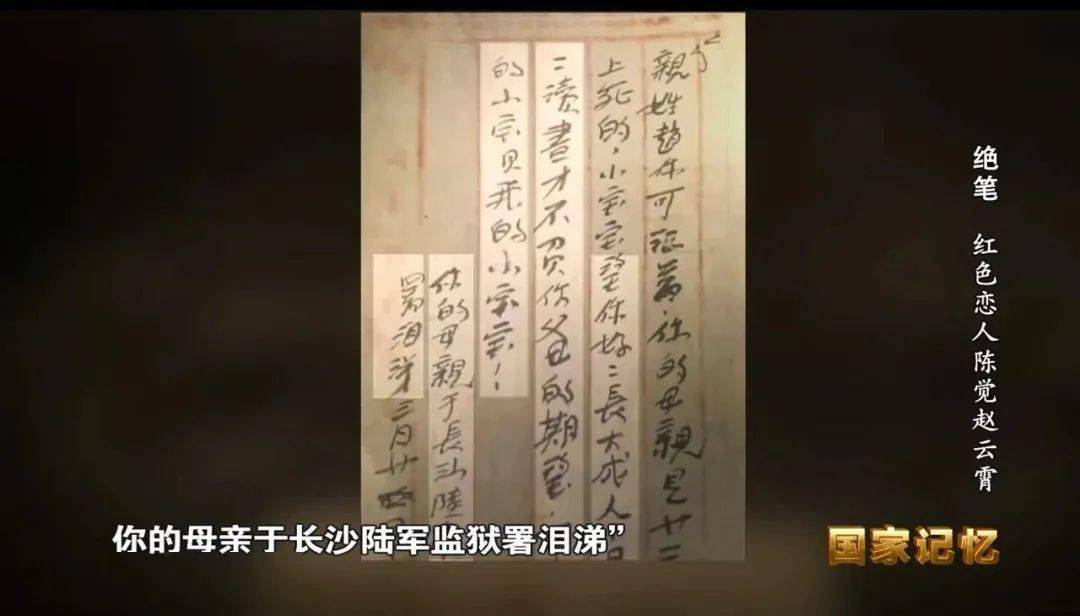 親姓趙你可記著,你的母親是廿三
上死的,小宝宝望你好二長大成人且
二讀書才不負你父母的期望,
的小宝贝我的小宝宝!
你的母親于長沙陸
署泪涕三月廿
绝笔 红色恋人陈觉赵云霄
你的母亲于长沙陆军监狱署泪涕”
国家记忆